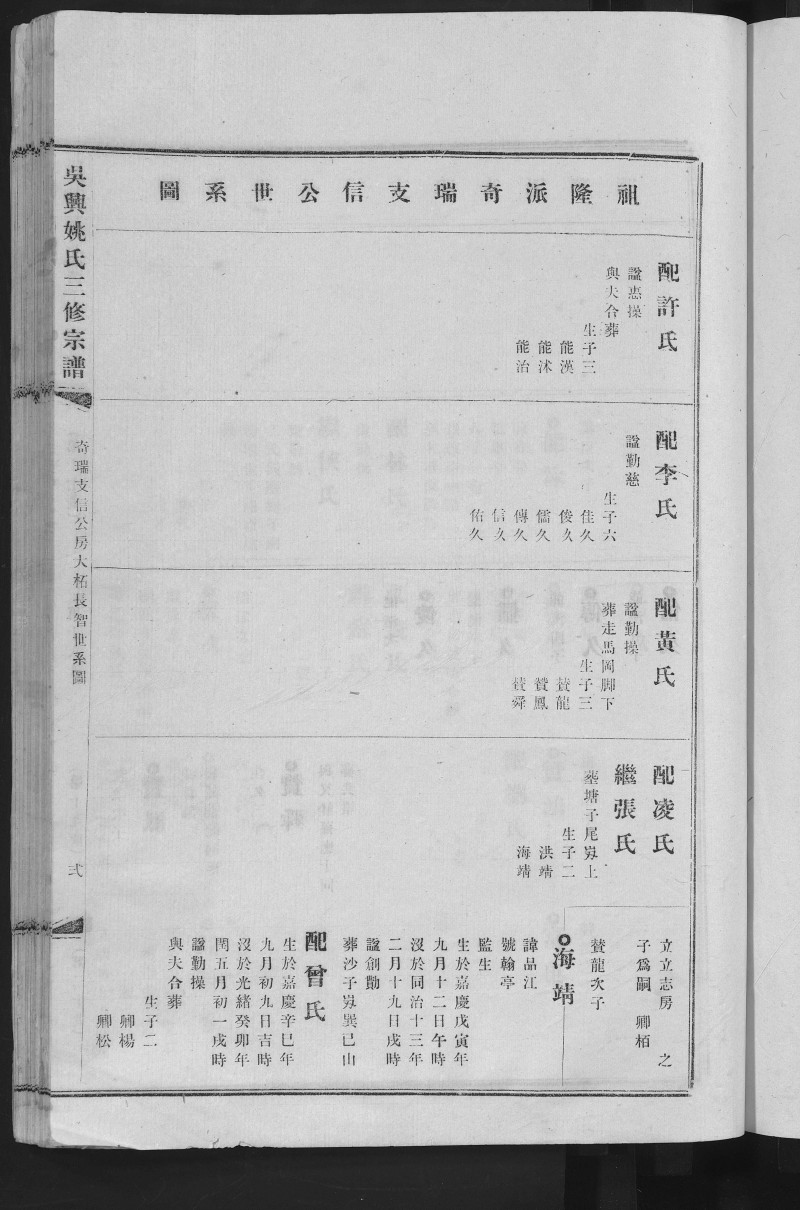 祖隆派奇瑞支信公世系圖
配許氏
諡惠操
與夫合葬
生子三
能漢
能沭
能治
配李氏
諡勤慈
生子六
佳久
俊久
儒久
傳久
信久
佑久
配黃氏
諡勤操
葬走馬岡脚下
生子三
賛龍
賛鳳
賛舜
配凌氏
繼張氏
塟塘子尾岃上
生子二
洪靖
海靖
立立志房 之
子爲嗣 卿栢
賛龍次子
海靖
諱品江
號翰亭
監生
生於嘉慶戊寅年
九月十二日午時
沒於同治十三年
二月十九日戌時
諡創勤
葬沙子岃巽已山
配曾氏
生於嘉慶辛巳年
九月初九日吉時
沒於光緒癸卯年
閏五月初一戌時
諡勤操
與夫合葬
生子二
卿楊
卿松
吳興姚氏三修宗譜
奇瑞支信公房大柘長智世系圖
弍